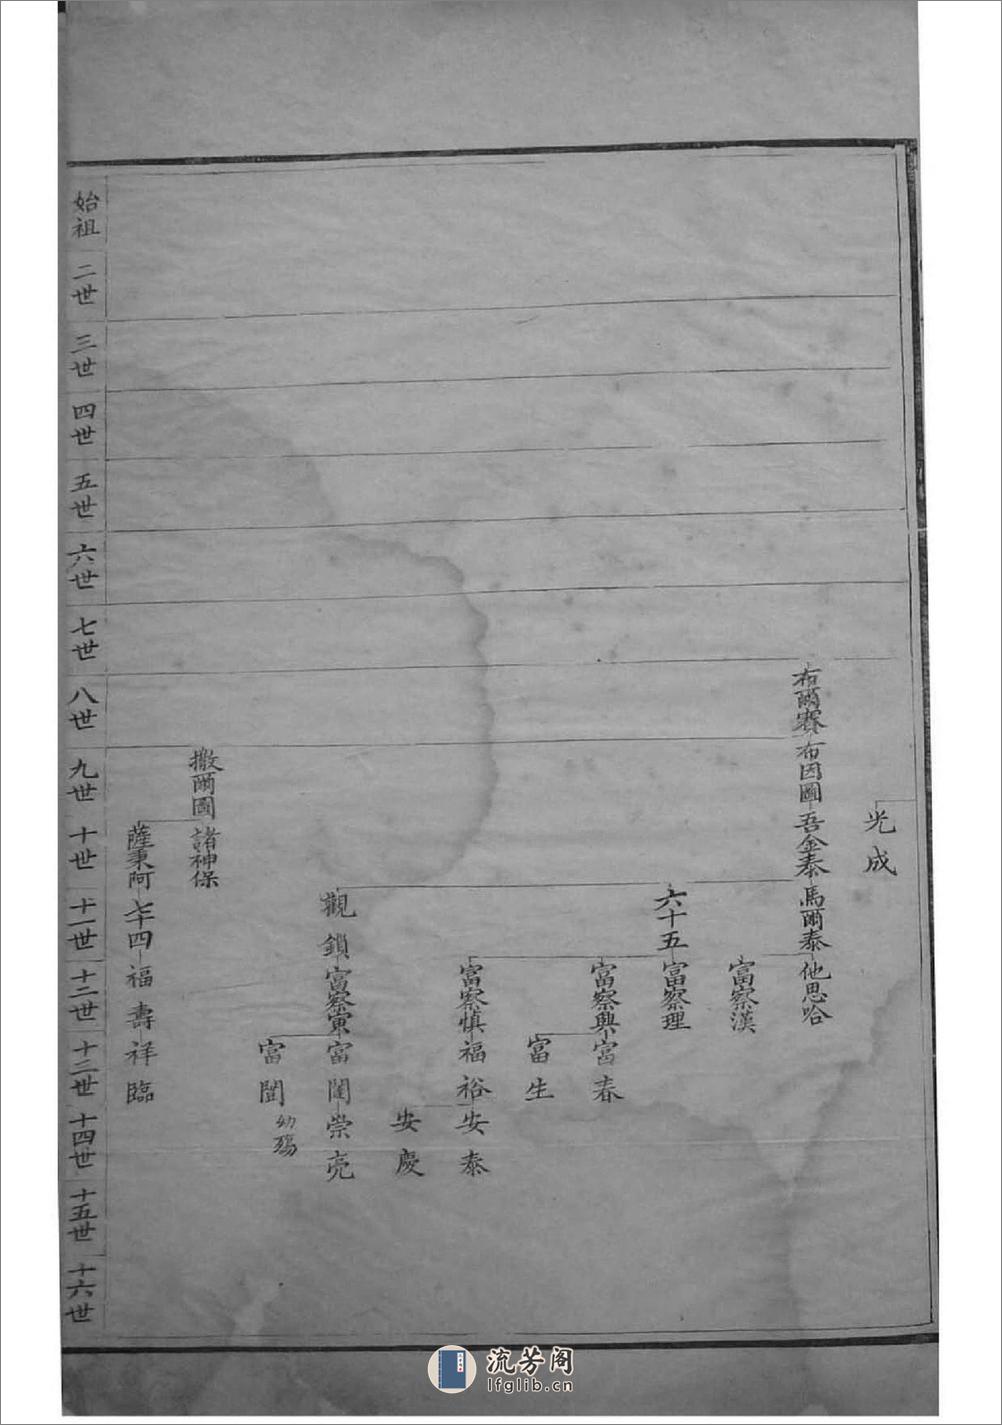 光成
布爾賽
布因圖
吾金泰
馬爾泰
他思哈
富察漢
六十五
富察理
富察興
富春
富生
富察慎
福裕
安泰
安慶
觀鎖
富察寅
富闊
崇亮
富閏
幼殤
撒爾圖
諸神保
薩秉阿
七十四
福壽
祥臨
始祖
二世
三世
四世
五世
六世
七世
八世
九世
十世
十一世
十二世
十三世
十四世
十五世
十六世
流芳阁
lfglib.cn